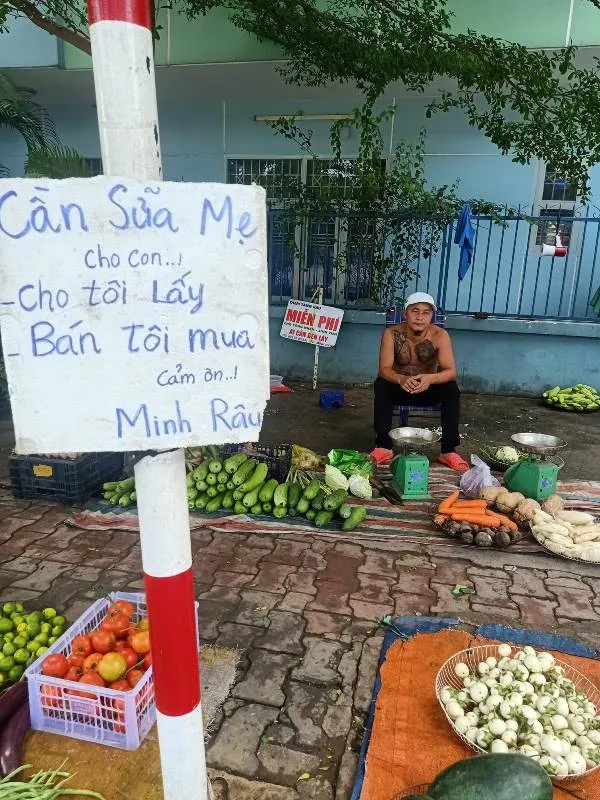 Cần Sữa Mẹ
cho con...!
- Cho tôi Lấy
- Bán Tôi mua
Cảm ơn...!
Minh Râu
MIỄN PHÍ
AI CẦN ĐẾN LẤY